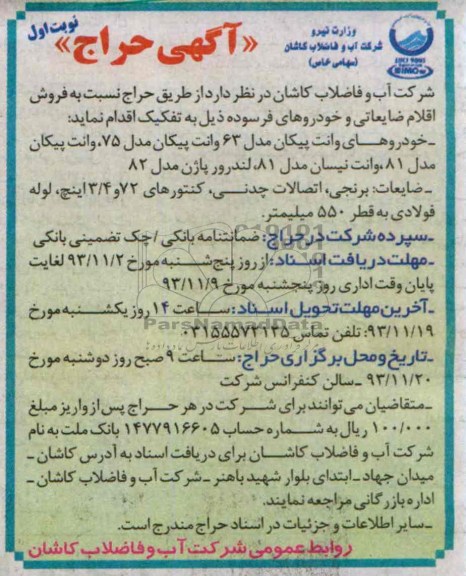 نوبت اول
وزارت نیرو
شرکت آب و فاضلاب کاشان
(سهامی خاص)
«آگهی حراج»
شرکت آب و فاضلاب کاشان در نظر دارد از طریق حراج نسبت به فروش
اقلام ضایعاتی و خودروهای فرسوده ذیل به تفکیک اقدام نماید:
ـ خودروهای وانت پیکان مدل ۶۳ وانت پیکان مدل ۷۵، وانت پیکان
مدل ۸۱، وانت نیسان مدل ۸۱، لندرور پاژن مدل ۸۲
ـ ضایعات: برنجی، اتصالات چدنی، کنتورهای ۷۲و۳/۴ اینچ، لوله
فولادی به قطر ۵۵۰ میلیمتر.
ـ سپرده شرکت در حراج: ضمانتنامه بانکی / چک تضمینی بانکی
ـ مهلت دریافت اسناد: از روز پنج‌شنبه مورخ ۹۳/۱۱/۲ لغایت
پایان وقت اداری روز پنجشنبه مورخ ۹۳/۱۱/۹
ـ آخرین مهلت تحویل اسناد: ساعت ۱۴ روز یکشنبه مورخ
۹۳/۱۱/۱۹: تلفن تماس ۰۳۱۵۵۵۷۲۱۲۵
ـ تاریخ و محل برگزاری حراج: ساعت ۹ صبح روز دوشنبه مورخ
۹۳/۱۱/۲۰ ـ سالن کنفرانس شرکت
ـ متقاضیان می‌توانند برای شرکت در هر حراج پس از واریز مبلغ
۱۰۰/۰۰۰ ریال به شماره حساب ۱۴۷۷۹۱۶۶۰۵ بانک ملت به نام
شرکت آب و فاضلاب کاشان برای دریافت اسناد به آدرس کاشان ـ
میدان جهاد ـ ابتدای بلوار شهید باهنر ـ شرکت آب و فاضلاب کاشان ـ
اداره بازرگانی مراجعه نمایند.
ـ سایر اطلاعات و جزئیات در اسناد حراج مندرج است.
روابط عمومی شرکت آب و فاضلاب کاشان
ParsNamadData